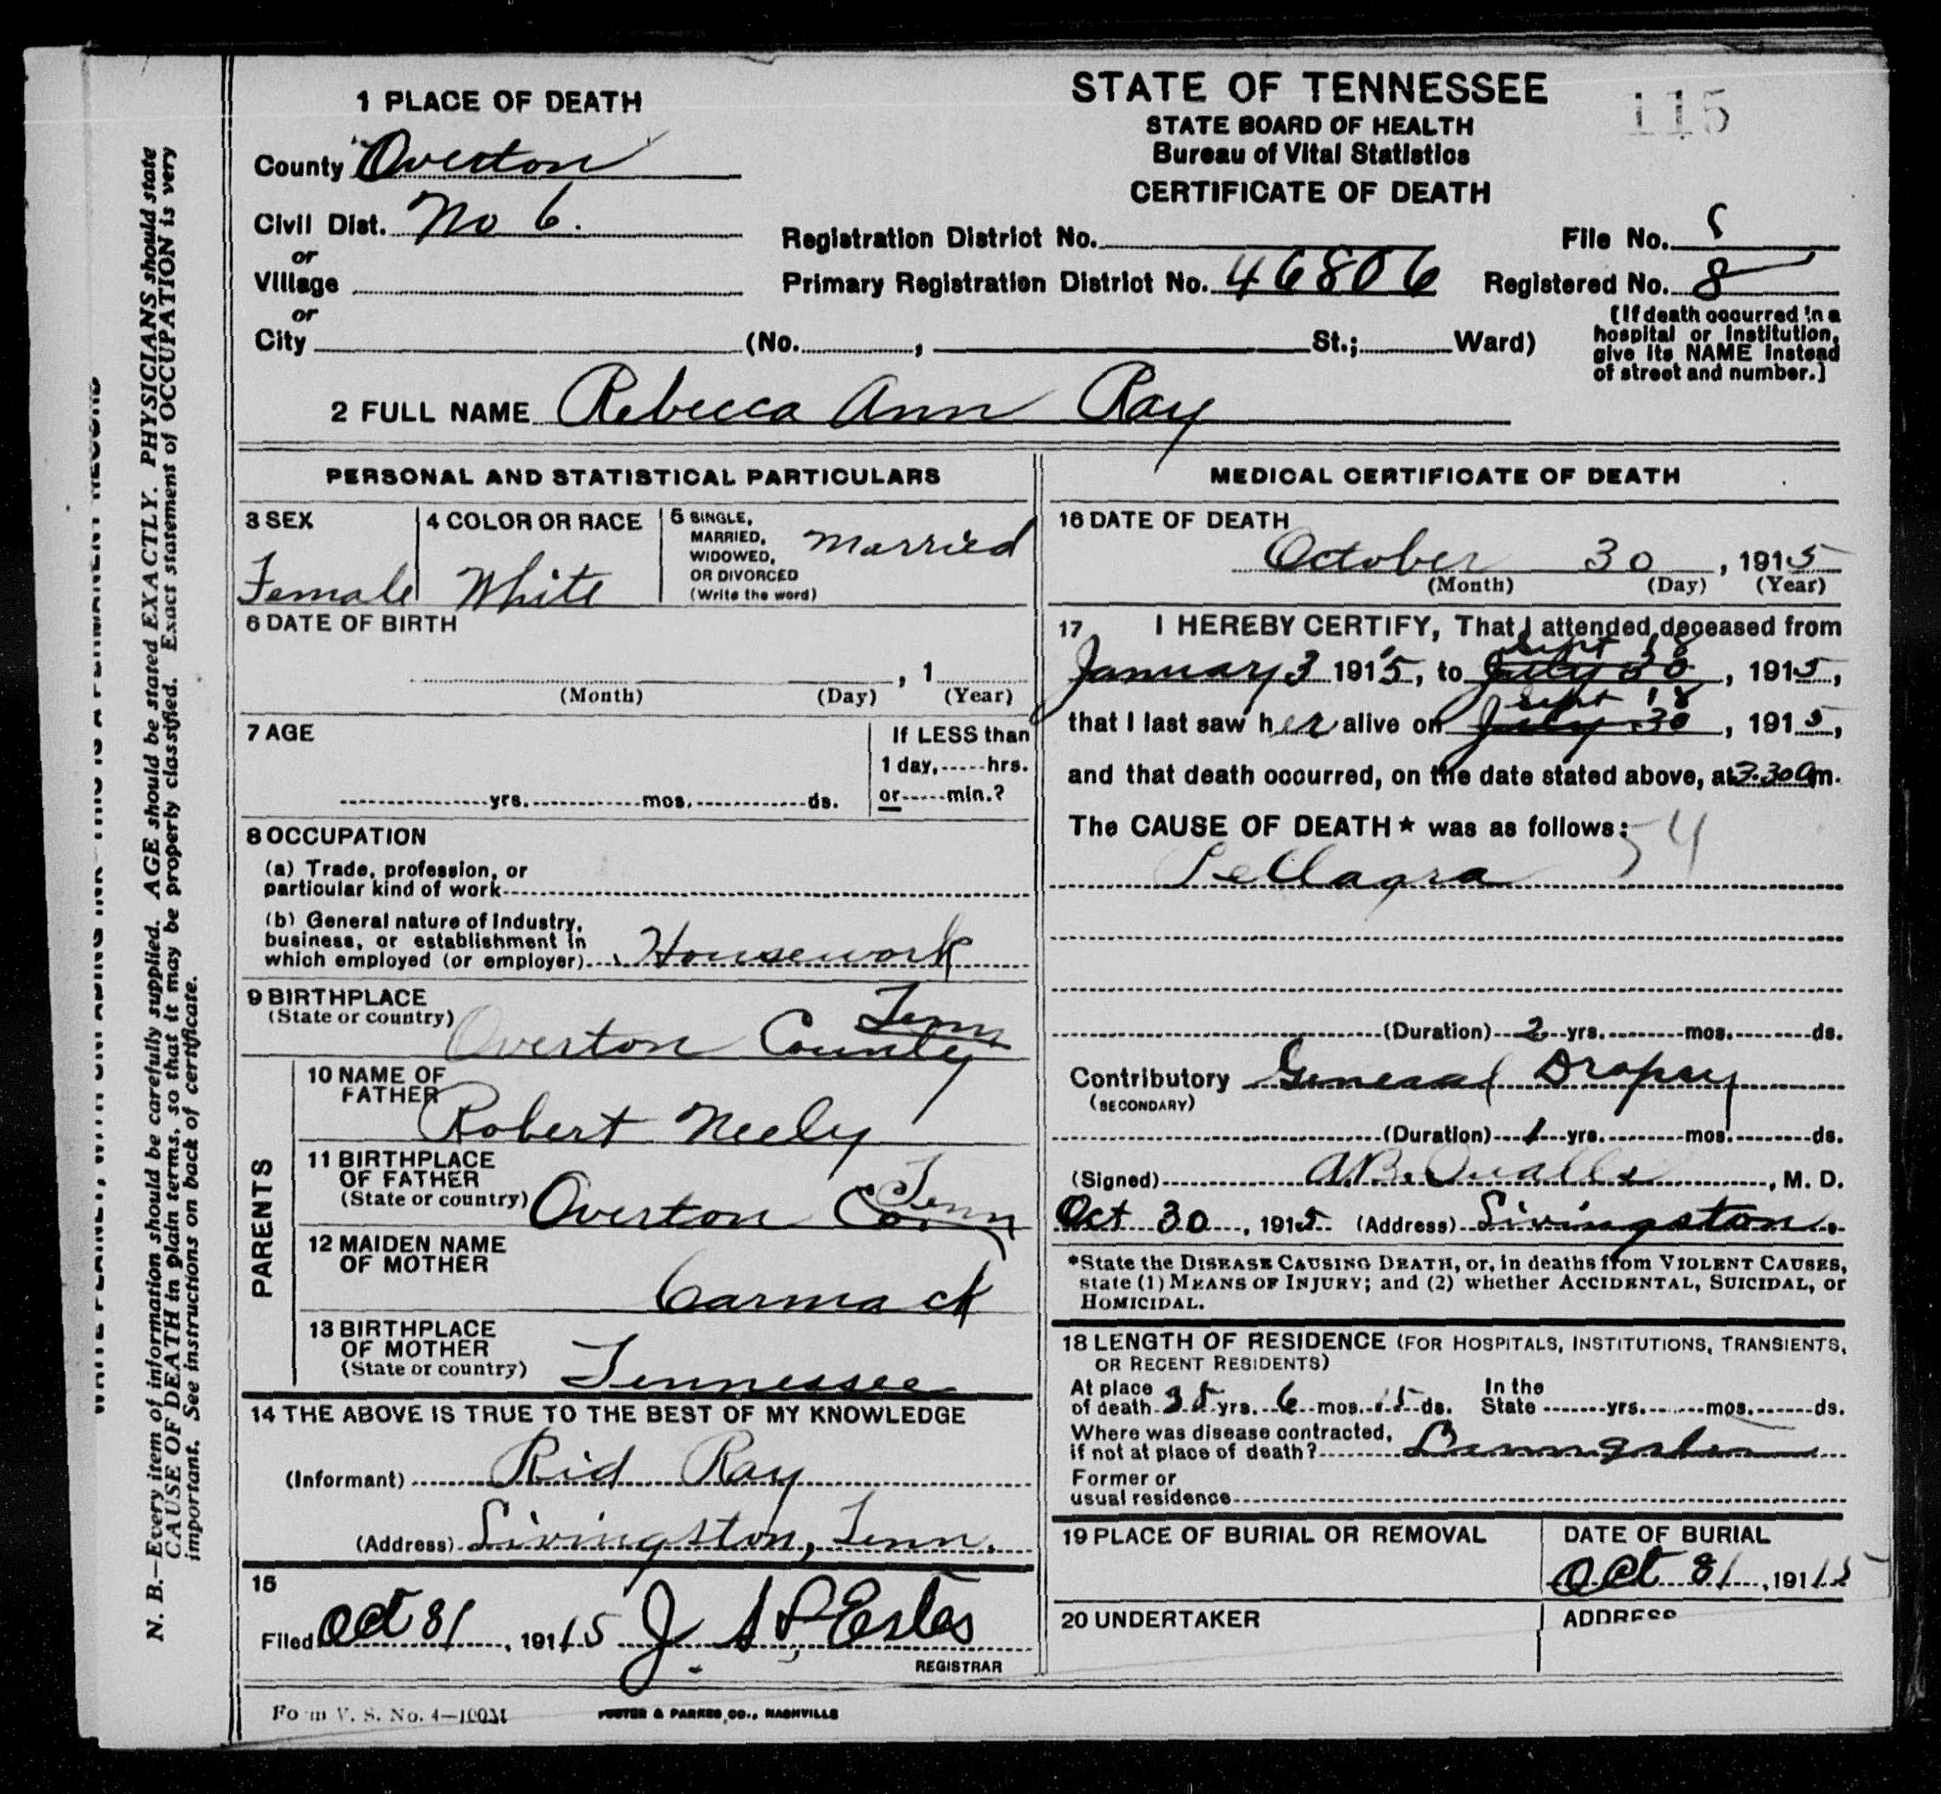 1 PLACE OF DEATH
STATE OF TENNESSEE
115
STATE BOARD OF HEALTH
Bureau of Vital Statistics
CERTIFICATE OF DEATH
County Overton
Civil Dist. No 6.
or
Village
or
City (No. , St.; Ward)
Registration District No.
File No. 8
Primary Registration District No. 46806
Registered No. 8
(If death occurred in a
hospital or institution,
give its NAME instead
of street and number.)
2 FULL NAME Rebecca Ann Ray
PERSONAL AND STATISTICAL PARTICULARS
3 SEX
Female
4 COLOR OR RACE
White
5 SINGLE,
MARRIED,
WIDOWED,
OR DIVORCED
(Write the word)
Married
6 DATE OF BIRTH
, 1
(Month) (Day) (Year)
7 AGE
yrs. mos. ds.
If LESS than
1 day, hrs.
or min.?
8 OCCUPATION
(a) Trade, profession, or
particular kind of work
(b) General nature of industry,
business, or establishment in
which employed (or employer) Housework
9 BIRTHPLACE
(State or country) Overton County Tenn
PARENTS
10 NAME OF
FATHER
Robert Neely
11 BIRTHPLACE
OF FATHER
(State or country) Overton Co Tenn
12 MAIDEN NAME
OF MOTHER
Carmack
13 BIRTHPLACE
OF MOTHER
(State or country) Tennessee
14 THE ABOVE IS TRUE TO THE BEST OF MY KNOWLEDGE
(Informant) Rid Ray
(Address) Livingston, Tenn.
15
Filed Oct 31, 191 15 J. S. P. Estes
REGISTRAR
MEDICAL CERTIFICATE OF DEATH
16 DATE OF DEATH
October 30, 1915
(Month) (Day) (Year)
17 I HEREBY CERTIFY, That I attended deceased from
Sept 18
January 3 1915, to July 30, 1915,
Sept 18
that I last saw her alive on July 30, 1915,
and that death occurred, on the date stated above, at 3.30 a m.
The CAUSE OF DEATH* was as follows: 54
Pellagra
(Duration) 2 yrs. mos. ds.
Contributory General Dropsy
(SECONDARY)
(Duration) 1 yrs. mos. ds.
(Signed) A.B. Qualls, M. D.
Oct 30, 1915 (Address) Livingston.
*State the DISEASE CAUSING DEATH, or, in deaths from VIOLENT CAUSES,
state (1) MEANS OF INJURY; and (2) whether ACCIDENTAL, SUICIDAL, or
HOMICIDAL.
18 LENGTH OF RESIDENCE (FOR HOSPITALS, INSTITUTIONS, TRANSIENTS,
OR RECENT RESIDENTS)
At place
of death 35 yrs. 6 mos. 15 ds.
In the
State yrs. mos. ds.
Where was disease contracted,
if not at place of death?
Former or
usual residence
19 PLACE OF BURIAL OR REMOVAL
DATE OF BURIAL
Oct 31, 191 15
20 UNDERTAKER
ADDRESS
Form V. S. No. 4—100M
FOSTER & PARKES CO., NASHVILLE
N. B.—Every item of information should be carefully supplied. AGE should be stated EXACTLY. PHYSICIANS should state
CAUSE OF DEATH in plain terms, so that it may be properly classified. Exact statement of OCCUPATION is very
important. See instructions on back of certificate.